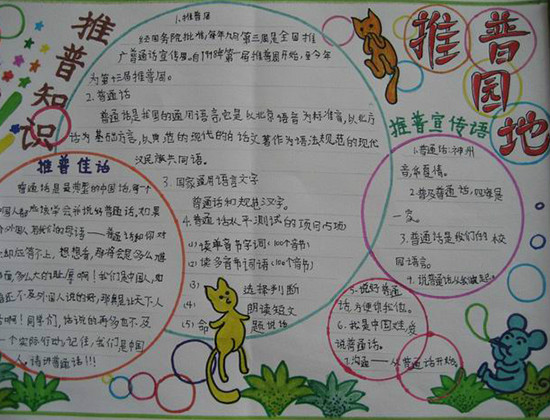 推普知识
1.推普周
经国务院批准,每年九月第三周是全国推
广普通话宣传周。自1998年第一届推普周开始,至今年
为第十三届推普周。
2.普通话
普通话是我国的通用语言,它是以北京语音为标准音,以北方
话为基础方言,以典范的现代的白话文著作为语法规范的现代
汉民族共同语。
3.国家通用语言文字
普通话和规范汉字。
4.普通话水平测试的项目与项
(1)读单音节字词(100个音节)
(2)读多音节词语(100个音节)
(3)选择判断
(4)朗读短文
(5)命题说话
推普佳话
普通话是最标准的中国话,每个
国人都应该学会并说好普通话,如果
外国人用我们的母语——普通话和你对
却应答不上,想想看,那将会是多么难
多么大的耻辱啊!我们是中国人,如
还不及外国人说的好,那真是让天下人
啊!同学们,话说的再多也不及
一个实际行动,记住,我们是中国
人,请讲普通话!!!
推普园地
推普宣传语
1.普通话:神州
音,华夏情。
2.普及普通话,四海是
一家。
3.普通话是我们的校
园语言。
4.说普通话从我做起!
5.说好普通
话,方便你我他。
6.我是中国娃,爱
说普通话。
7.沟通——从普通话开始。